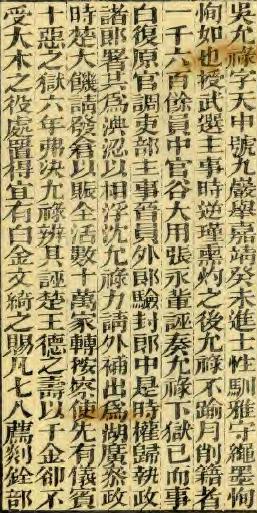 吳允祿字天中號九巖舉嘉靖癸未進士性馴雅守繩墨恂
恂如也授武選主事時逆瑾熏灼之後允祿不踰月削籍者
一千六百餘員中官谷大用張永輩誣奏允祿下獄已而事
白復原官調吏部主事晉員外郎驗封郎中是時權歸執政
諸郎署共為淟涊以相浮沈允祿力請外補出為湖廣叅政
時楚大饑請發倉以賑全活數十萬家轉按察使先有儀賓
十惡之獄六年弗決允祿辨其誣楚王德之壽以千金卻不
受大木之役處置得宜有白金文綺之賜凡七八薦剡銓部